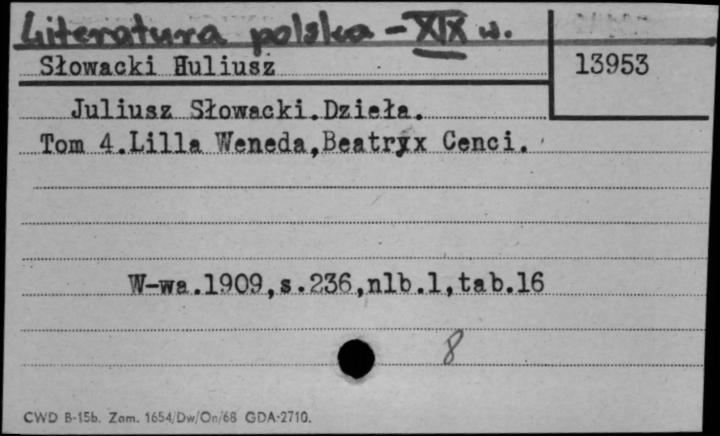 Literatura polska - XIX w.
Słowacki Huliusz
13953
Juliusz Słowacki.Dzieła.
Tom 4.Lilla Weneda,Beatryx Cenci.
W-wa.1909,s.236,nlb.1,tab.16
8
CWD B-15b. Zam. 1654/Dw/On/68 GDA-2710.